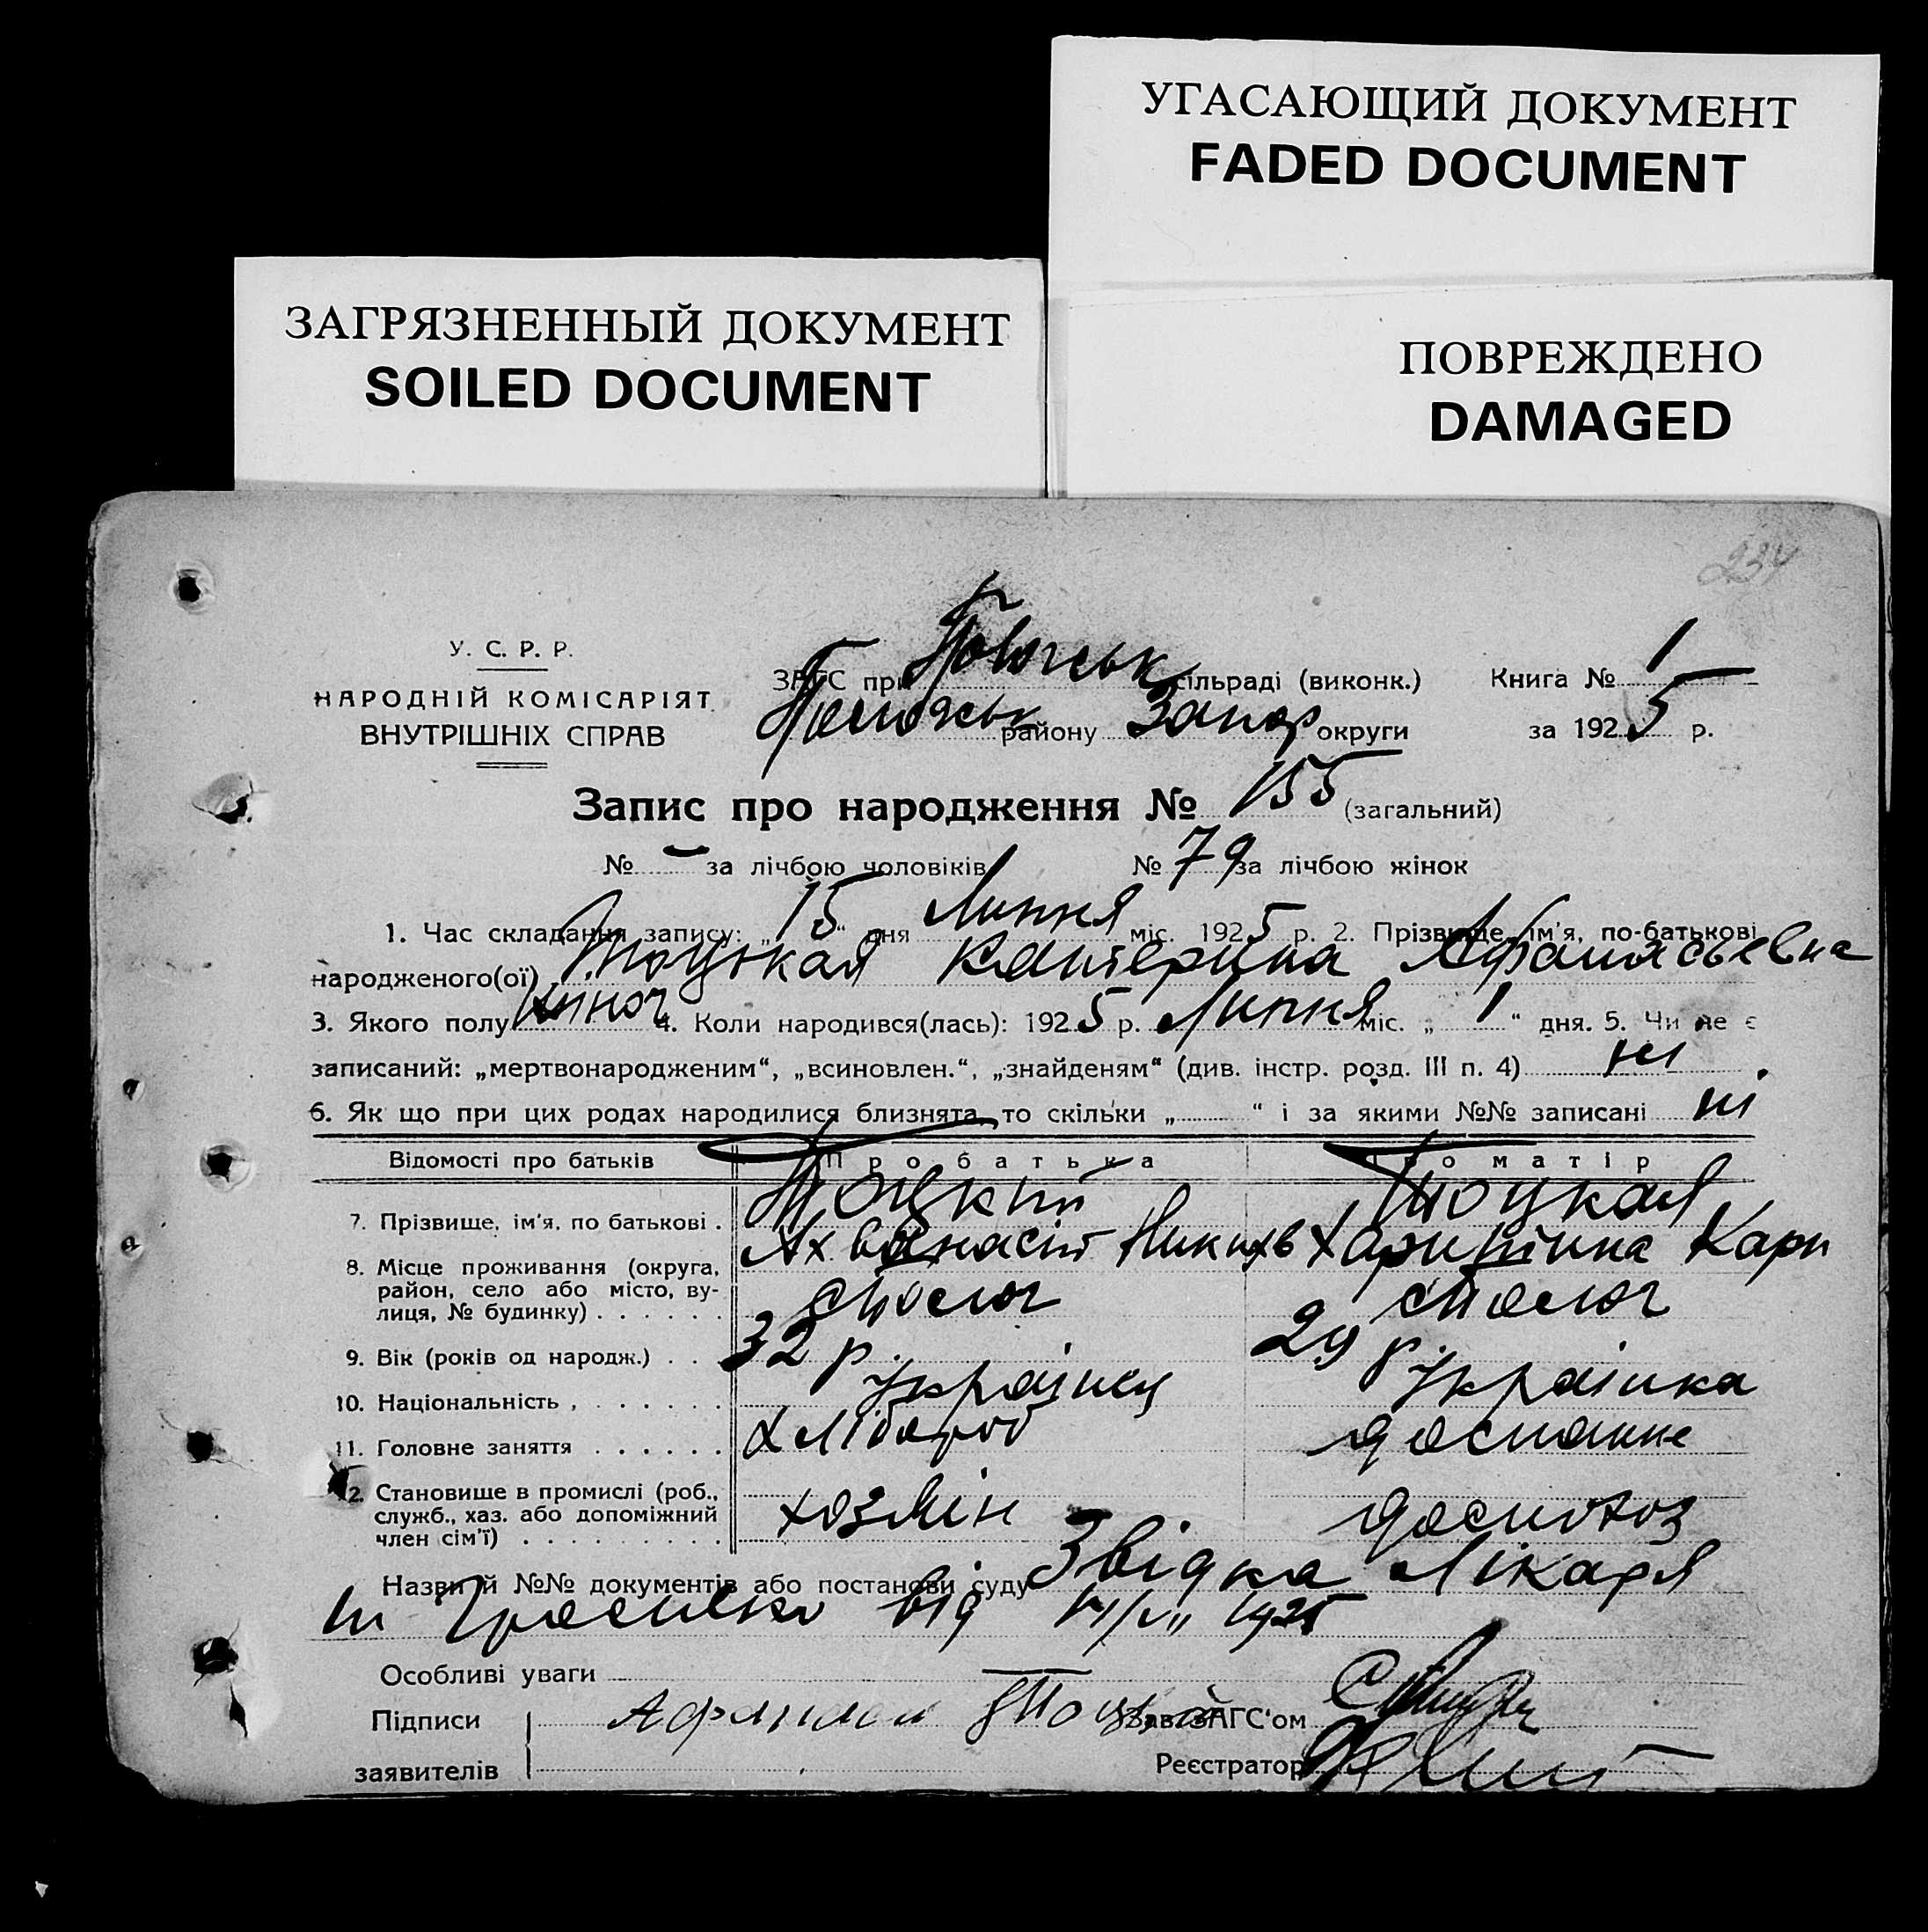 УГАСАЮЩИЙ ДОКУМЕНТ
FADED DOCUMENT
ЗАГРЯЗНЕННЫЙ ДОКУМЕНТ
SOILED DOCUMENT
ПОВРЕЖДЕНО
DAMAGED
234
У. С. Р. Р.
НАРОДНІЙ КОМІСАРІЯТ
ВНУТРІШНІХ СПРАВ
ЗАГС при сільраді (виконк.) Книга № 1
району Запор округи за 1925 р.
Запис про народження № 155 (загальний)
№ – за лічбою чоловіків № 79 за лічбою жінок
1. Час складання запису: „15“ дня Липня міс. 1925 р. 2. Прізвище, ім'я, по-батькові
народженого(ої) Тоцькая Катерина Афанасьевна
3. Якого полу жіноч 4. Коли народився(лась): 1925 р. Липня міс. „1“ дня. 5. Чи не є
записаний: „мертвонародженим“, „всиновлен.“, „знайденям“ (див. інстр. розд. III п. 4) ні
6. Як що при цих родах народилися близнята, то скільки „ “ і за якими №№ записані ні
Відомості про батьків Про батька Про матір
7. Прізвище, ім'я, по батькові . Тоцкий Тоцкая
Ахванасій Харитина Карп
8. Місце проживання (округа,
район, село або місто, ву-
лиця, № будинку) . . . . . .
9. Вік (років од народж.) . . . 32 р. 29 р
10. Національність , . . . . . . Українец Українка
11. Головне заняття . . . . . . Хлібороб
12. Становище в промислі (роб.,
служб., хаз. або допоміжний
член сім'ї) . . . . . . . . . хозяїн
Назви й №№ документів або постанови суду Звідка Лікаря
від 1925
Особливі уваги
Підписи Зав. ЗАГС'ом
заявителів Реєстратор